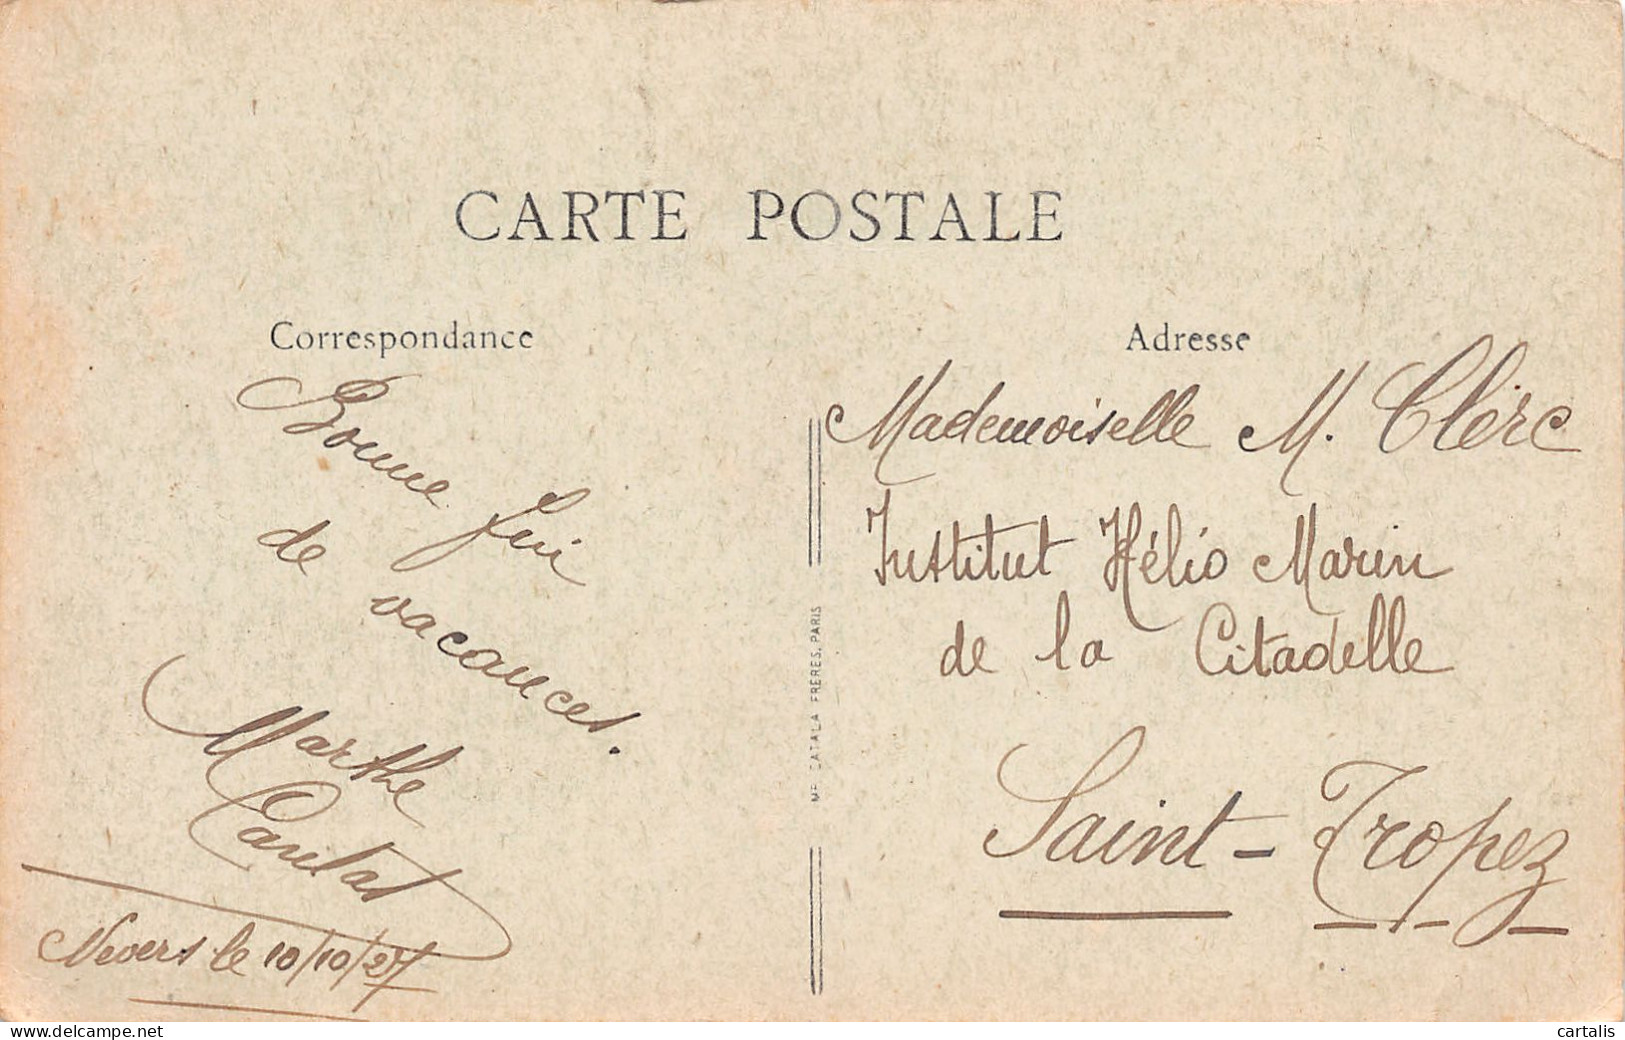 CARTE POSTALE
Correspondance
Bonne fin
de vacances.
Marthe
Nevers le 10/10/27
MP CATALA FRÈRES, PARIS
Adresse
Mademoiselle M. Clerc
Institut Hélio Marin
de la Citadelle
Saint-Tropez
cartalis